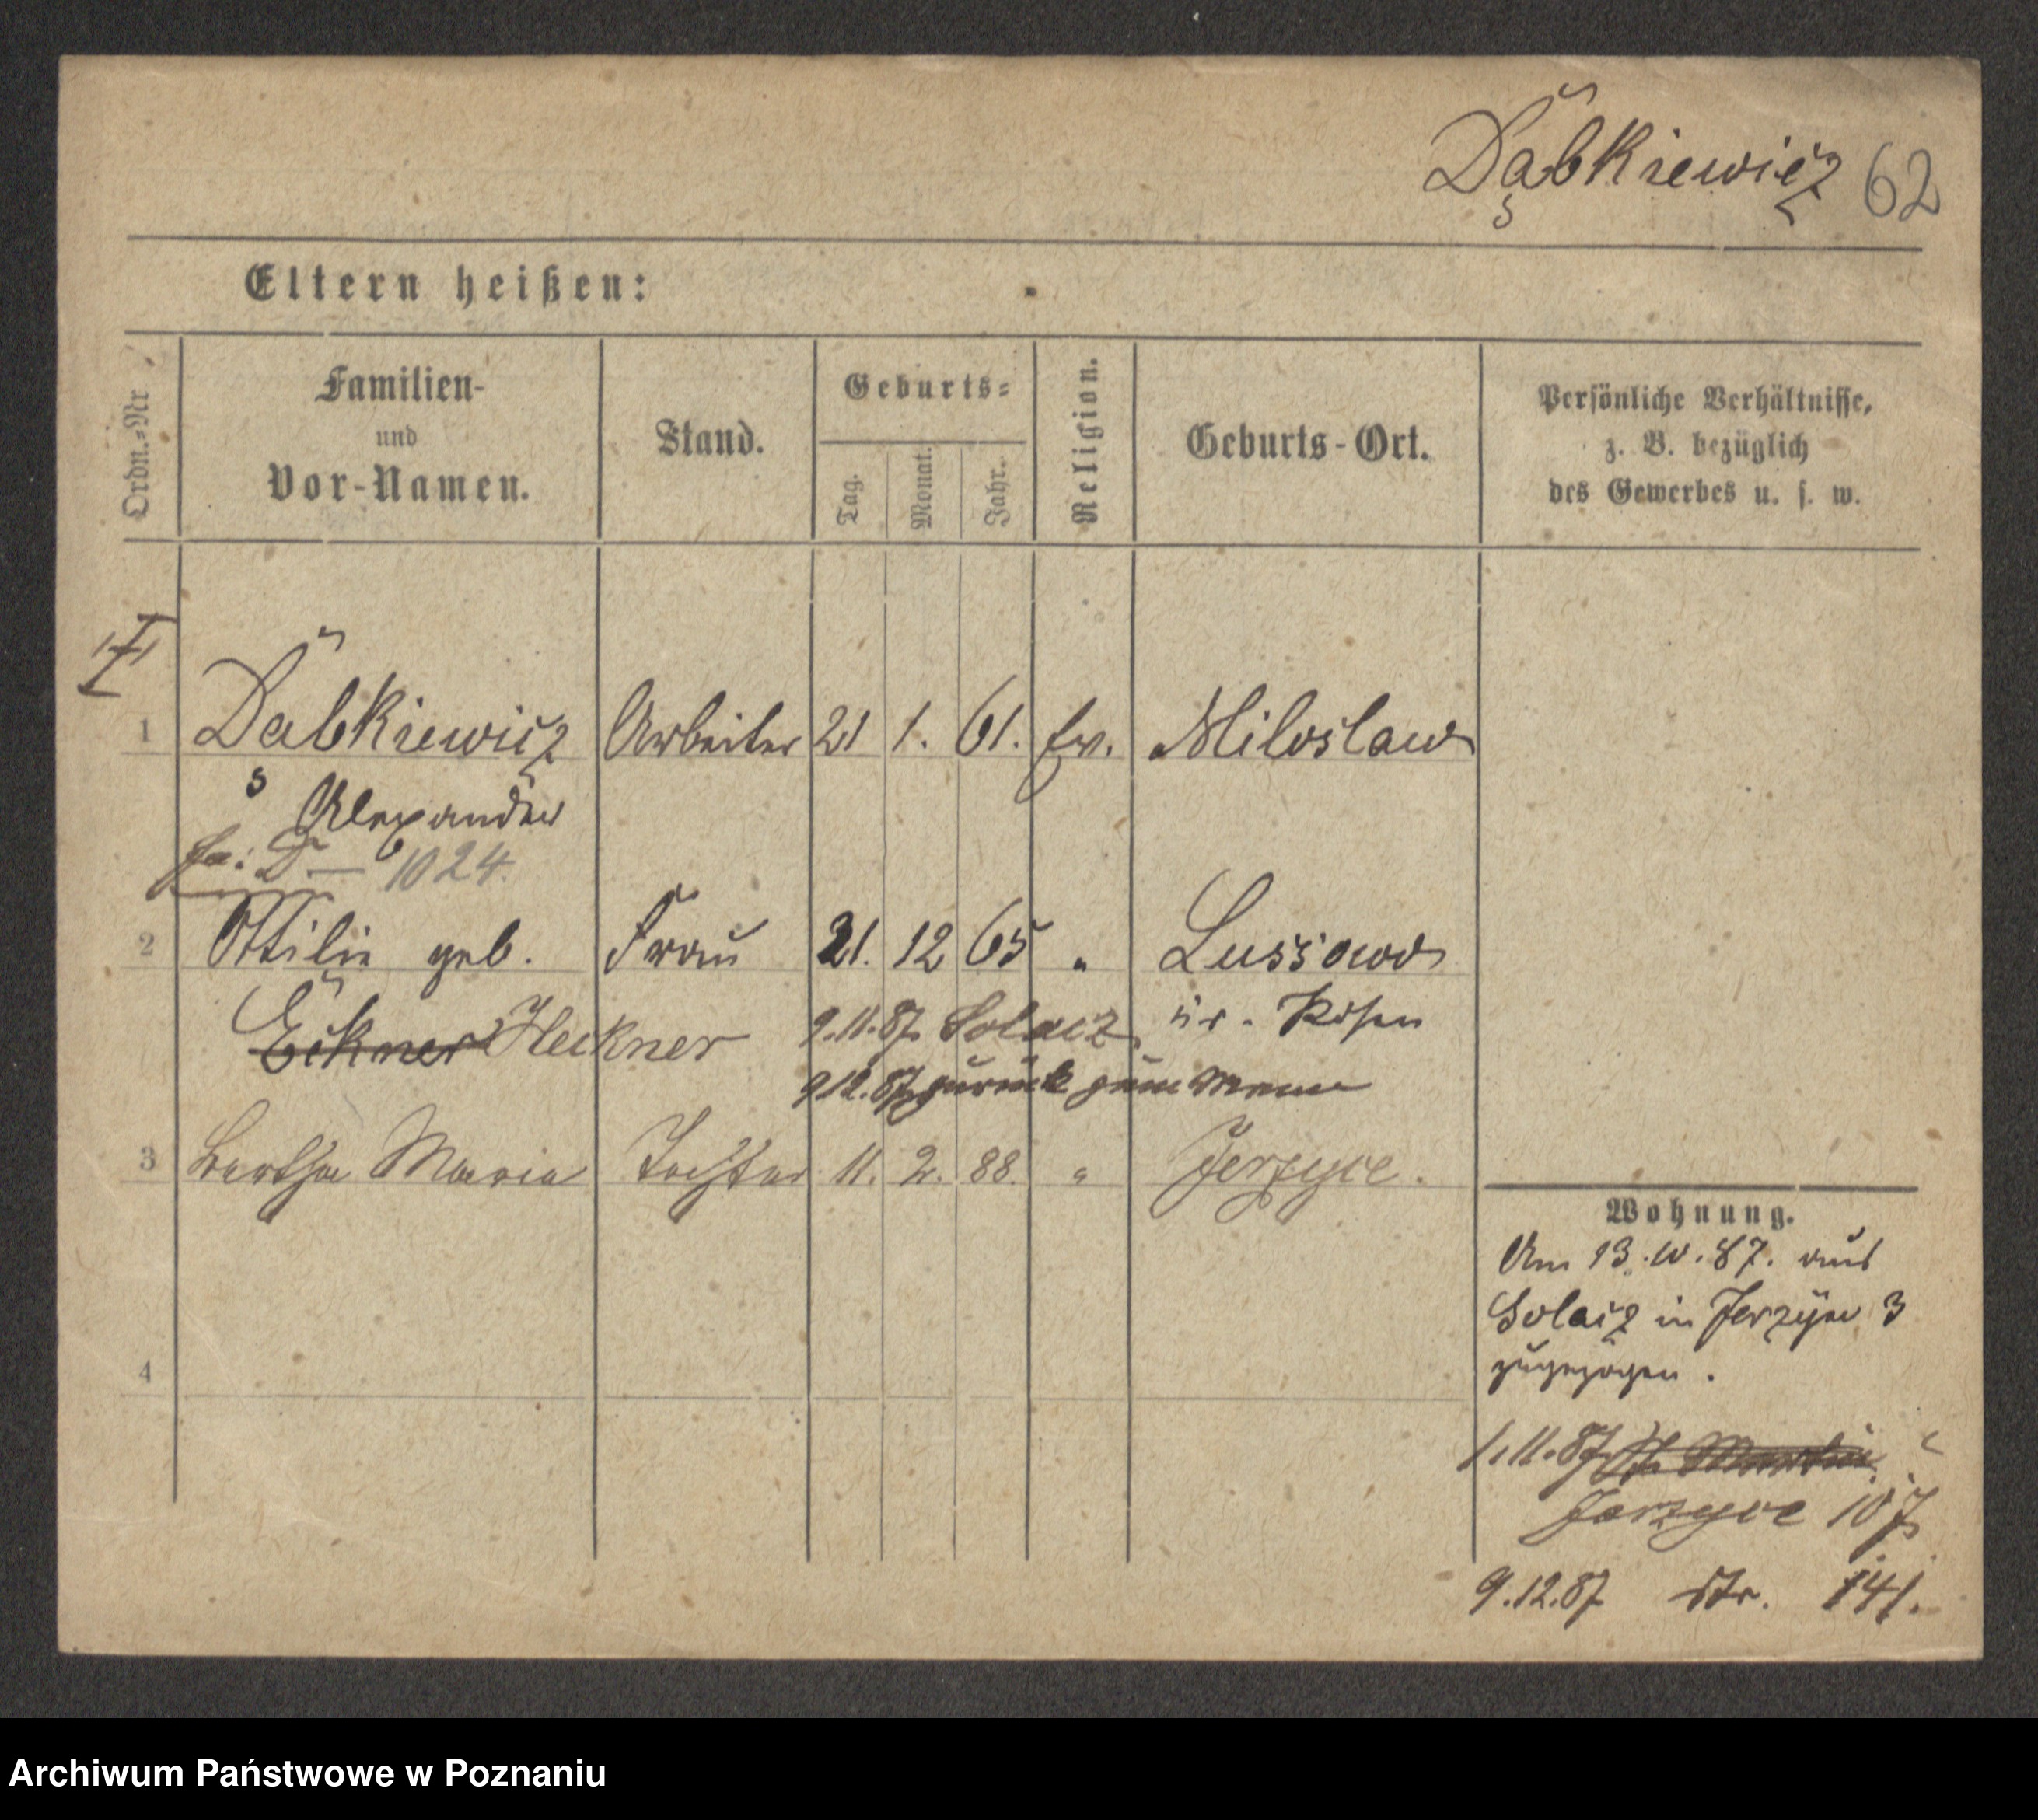 Dąbkiewicz 62
Eltern heißen:
Ordn.-Nr
Familien-
und
Vor-Namen.
Stand.
Geburts-
Tag.
Monat.
Jahr.
Religion.
Geburts-Ort.
Persönliche Verhältnisse,
z. B. bezüglich
des Gewerbes u. s. w.
1 Dąbkiewicz Arbeiter 21 1. 61. ev. Miloslaw
Alexander
1024.
2 Ottilie geb. Frau 21. 12 65 " Lussowo
Eckner Heckner 9.11.87. Solacz. Kr. Posen
9 12. 87 zurück zum Manne
3 Bertha Maria Tochter 11. 2. 88. " Jerzyce.
4
Wohnung.
Am 13. 10. 87. aus
Solacz in Jerzyce 3
zugezogen.
1.11.87 St Martin
Jerzyce 107
9.12.87 Str. 141.
Archiwum Państwowe w Poznaniu